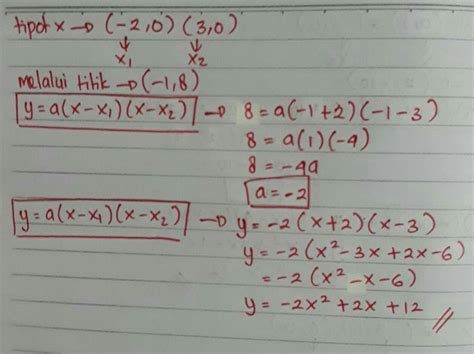 tipot x → (-2,0) (3,0)
↓ ↓
x₁ x₂
melalui titik → (-1,8)
y = a(x-x₁)(x-x₂) → 8 = a(-1+2)(-1-3)
8 = a(1)(-4)
8 = -4a
a = -2
y = a(x-x₁)(x-x₂) → y = -2(x+2)(x-3)
y = -2(x²-3x+2x-6)
= -2(x²-x-6)
y = -2x²+2x+12 //